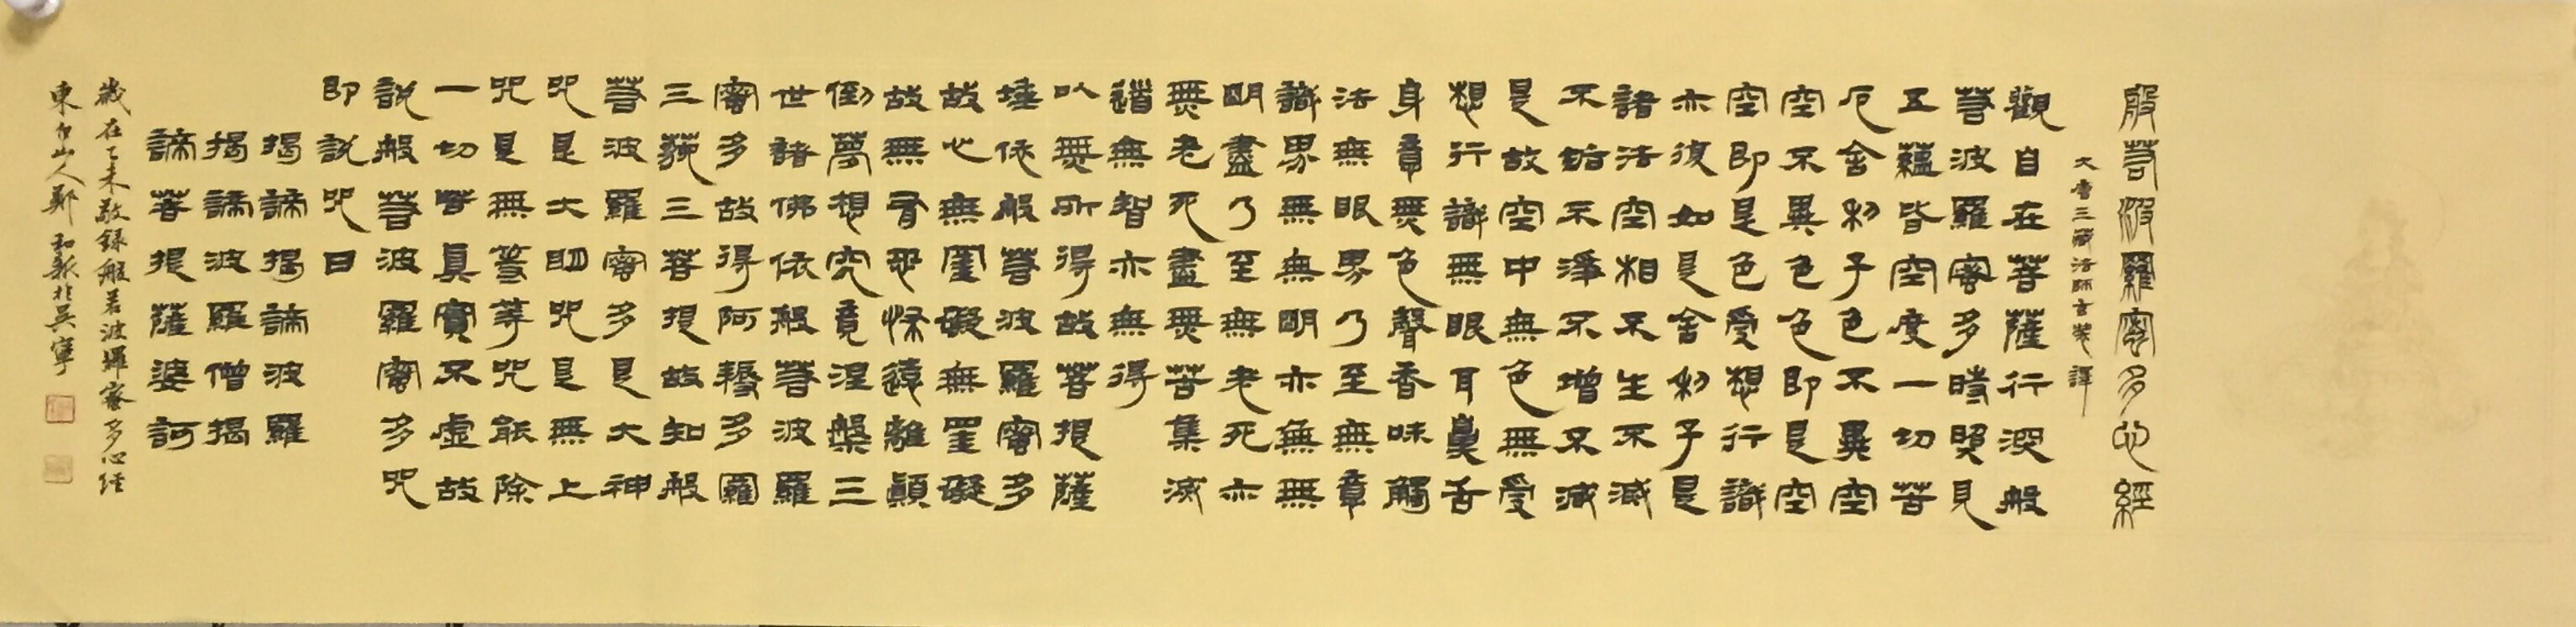 般若波羅密多心經
大唐三藏法師玄奘譯
觀自在菩薩行深般
若波羅密多時照見
五蘊皆空度一切苦
厄舍利子色不異空
空不異色色即是空
空即是色受想行識
亦復如是舍利子是
諸法空相不生不滅
不垢不淨不增不減
是故空中無色無受
想行識無眼耳鼻舌
身意無色聲香味觸
法無眼界乃至無意
識界無無明亦無無
明盡乃至無老死亦
無老死盡無苦集滅
道無智亦無得
以無所得故菩提薩
埵依般若波羅密多
故心無罣礙無罣礙
故無有恐怖遠離顛
倒夢想究竟涅槃三
世諸佛依般若波羅
密多故得阿耨多羅
三藐三菩提故知般
若波羅密多是大神
咒是大明咒是無上
咒是無等等咒能除
一切苦真實不虛故
說般若波羅密多咒
即說咒曰
揭諦揭諦波羅
揭諦波羅僧揭
諦菩提薩婆訶
歲在乙未敬録般若波羅蜜多心经
東白山人鄭和新於吴寧